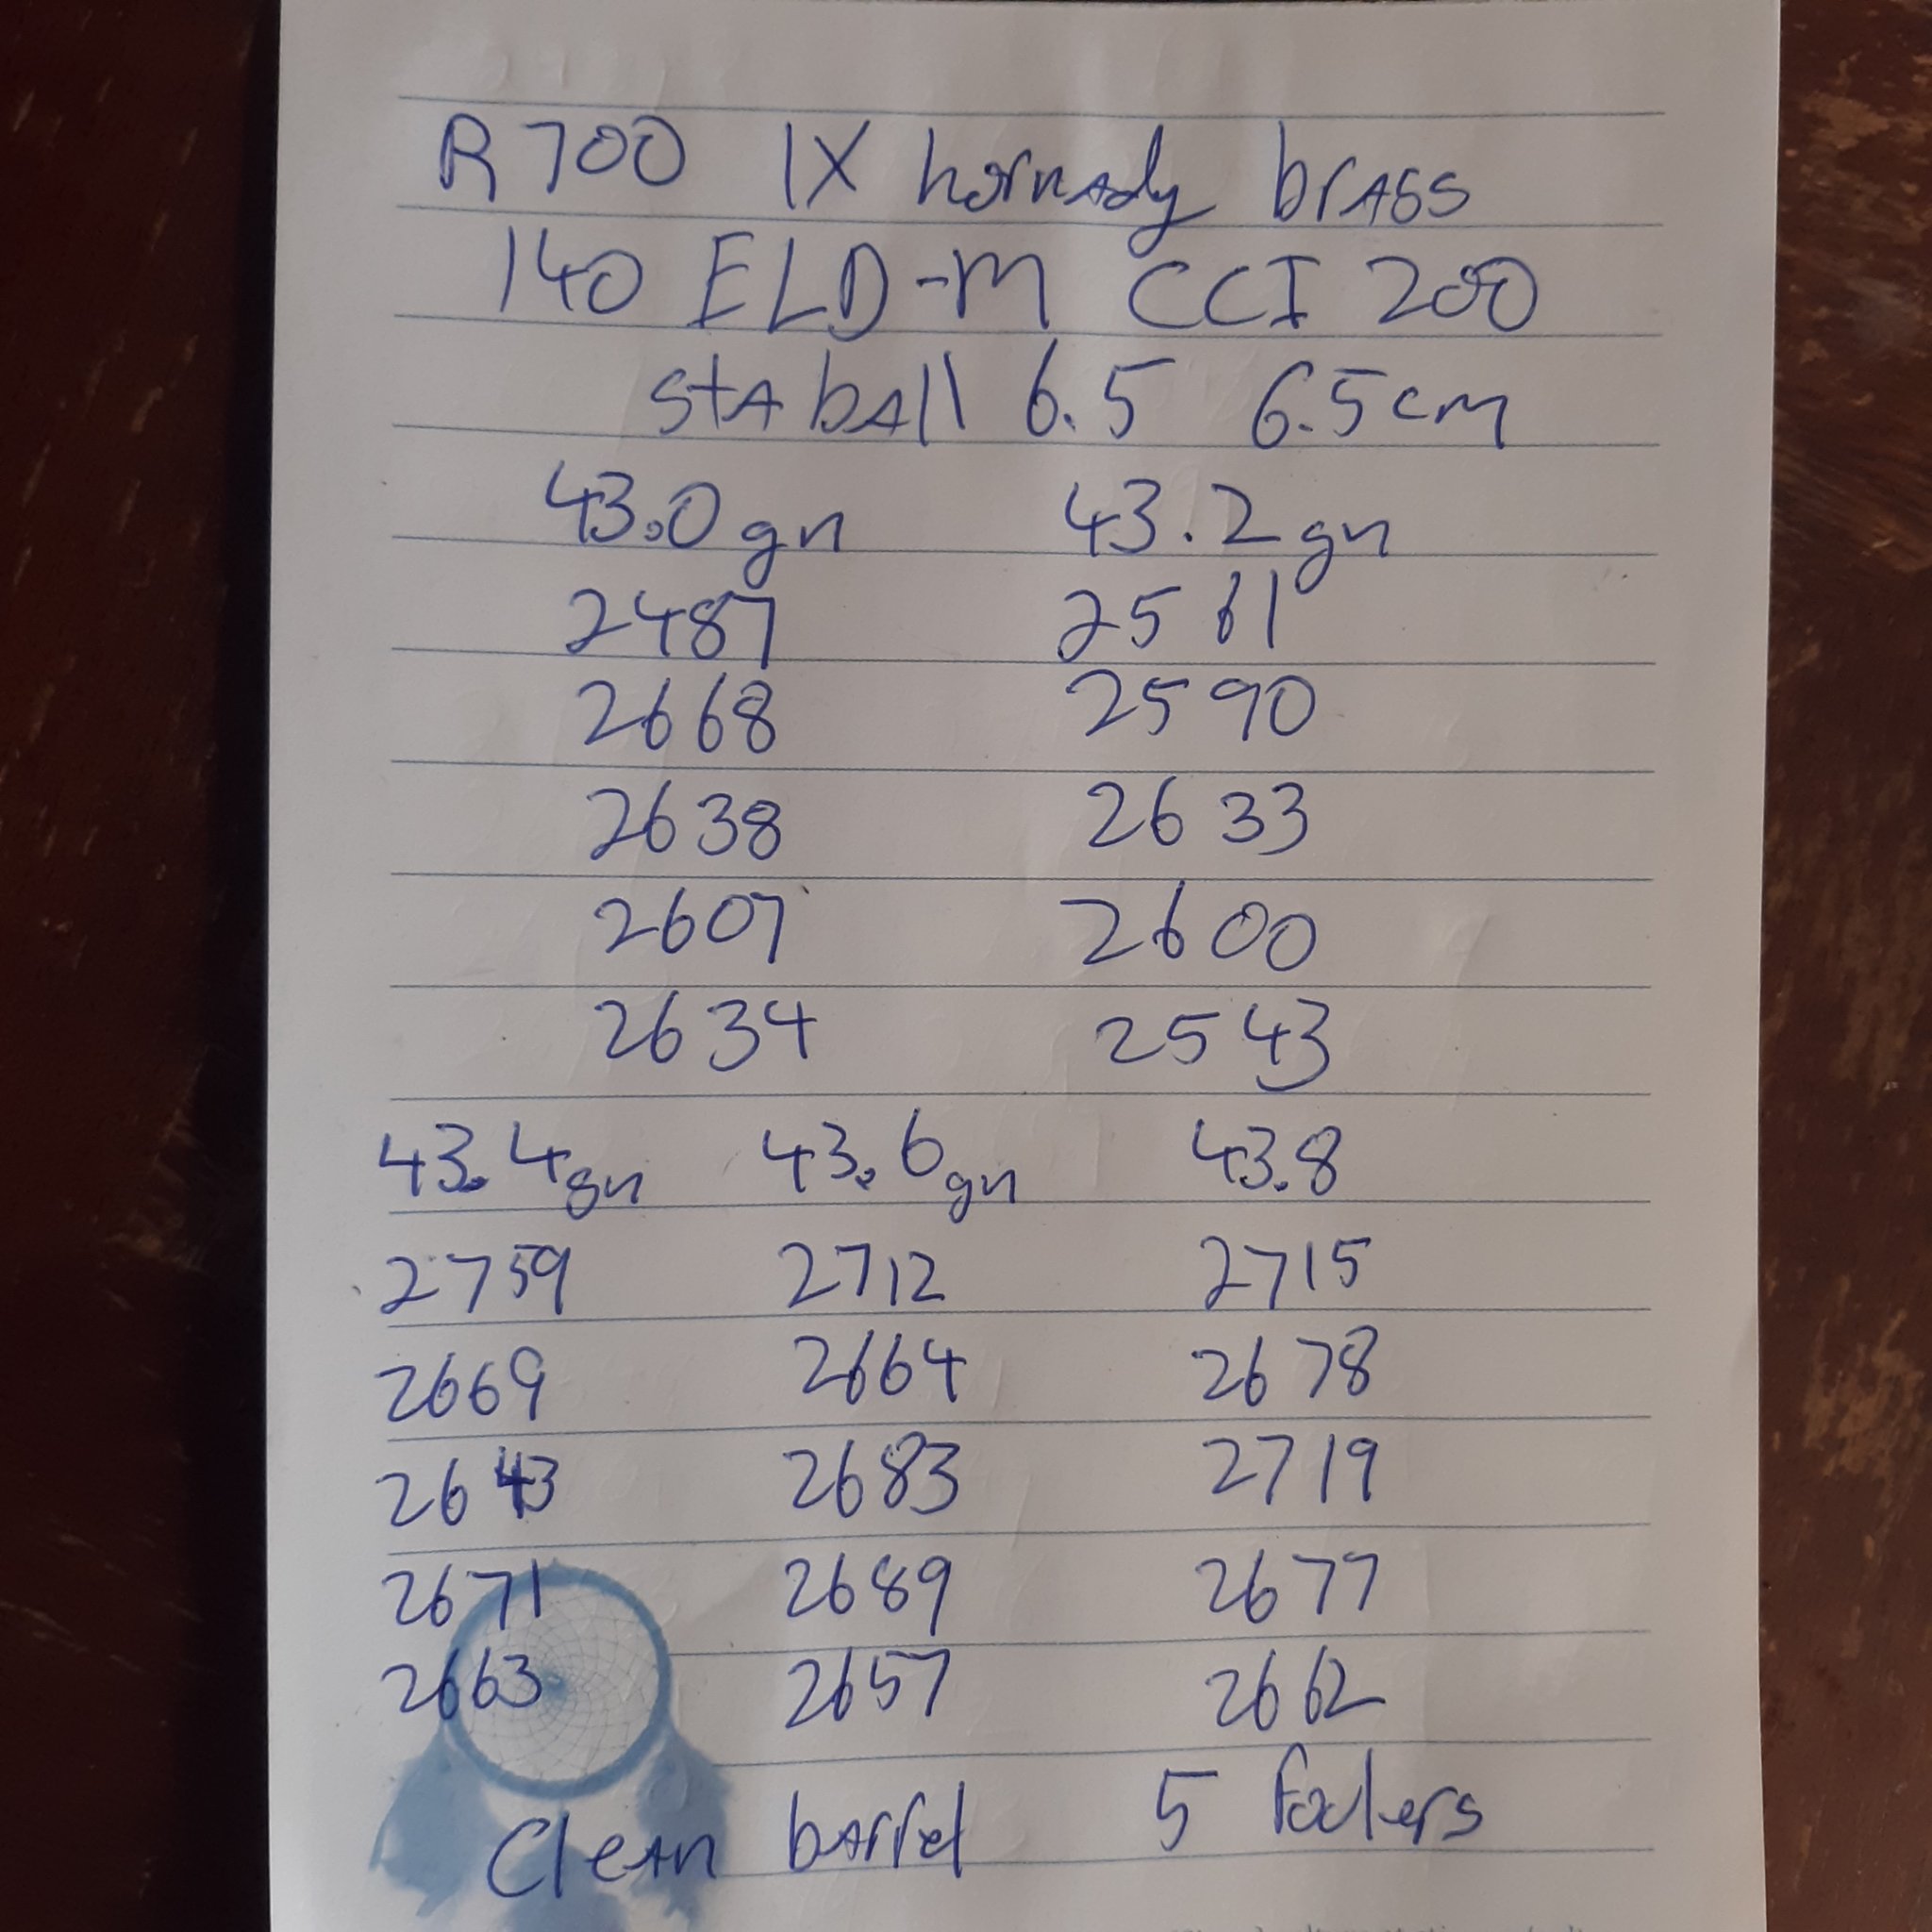 R700 1X hornady brass
140 ELD-M CCI 200
staball 6.5 6.5cm
43.0gn 43.2gn
2487 2561
2668 2590
2638 2633
2607 2600
2634 2543
43.4gn 43.6gn 43.8
2759 2712 2715
2669 2664 2678
2643 2683 2719
2671 2689 2677
2663 2657 2662
Clean barrel 5 foulers